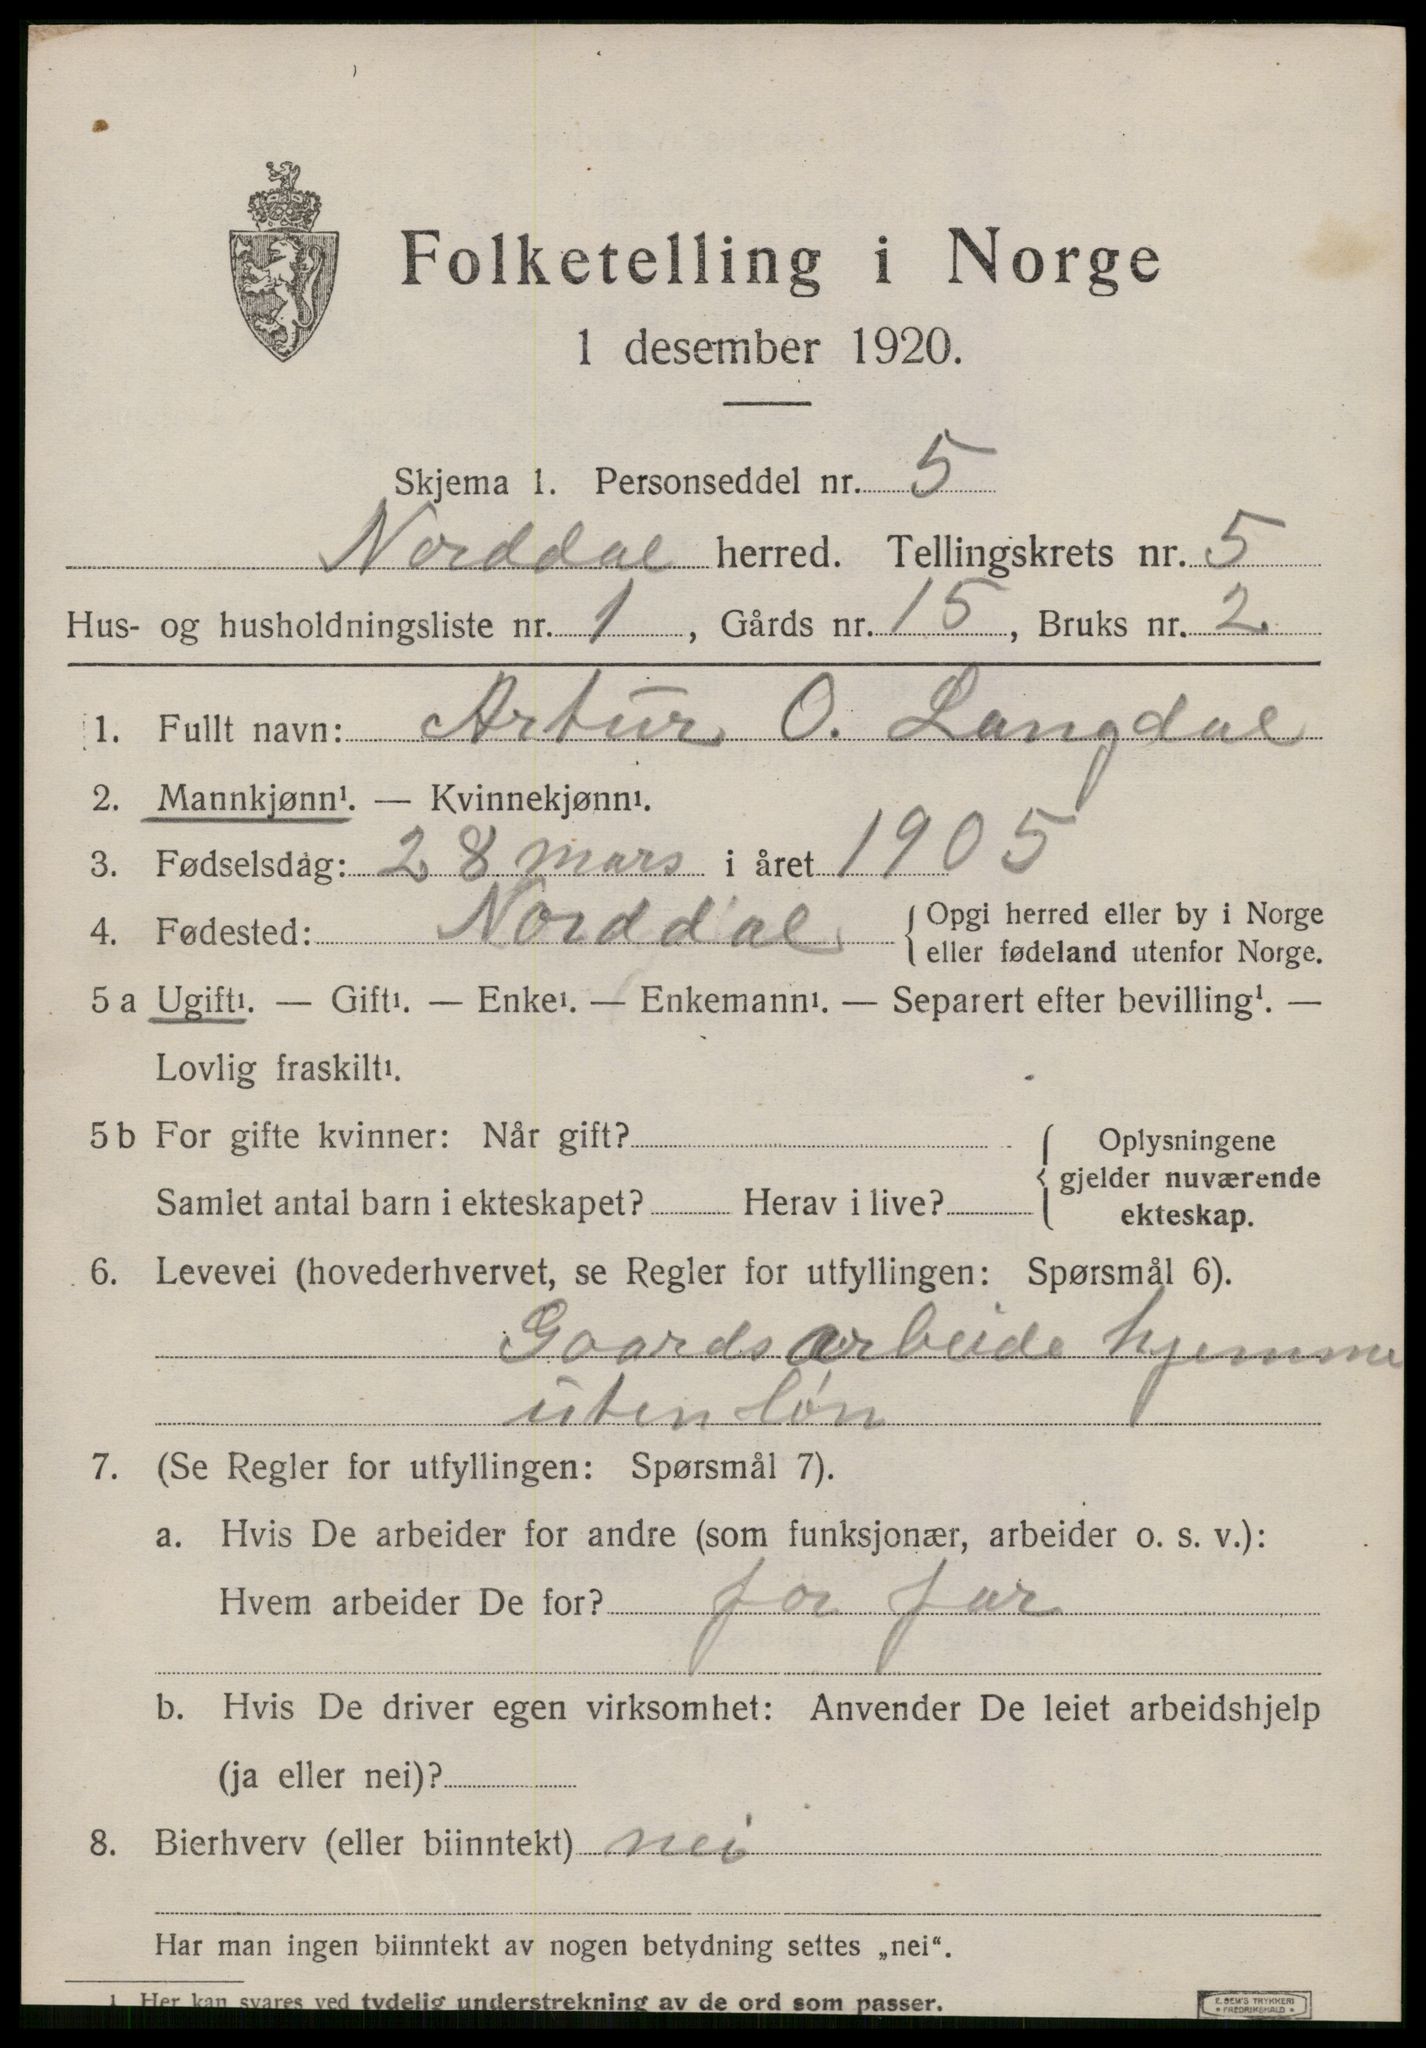 Folketelling i Norge
1 desember 1920.
Skjema 1. Personseddel nr. 5
Norddal herred. Tellingskrets nr. 5
Hus- og husholdningsliste nr. 1, Gårds nr. 15, Bruks nr. 2.
1. Fullt navn: Artur O. Langdal
2. Mannkjønn¹. — Kvinnekjønn¹.
3. Fødselsdag: 28 mars i året 1905
4. Fødested: Norddal { Opgi herred eller by i Norge
eller fødeland utenfor Norge.
5 a Ugift¹. — Gift¹. — Enke¹. — Enkemann¹. — Separert efter bevilling¹. —
Lovlig fraskilt¹.
5 b For gifte kvinner: Når gift?
Samlet antal barn i ekteskapet? Herav i live?
{ Oplysningene
gjelder nuværende
ekteskap.
6. Levevei (hovederhvervet, se Regler for utfyllingen: Spørsmål 6).
Gaardsarbeide hjemme
uten løn
7. (Se Regler for utfyllingen: Spørsmål 7).
a. Hvis De arbeider for andre (som funksjonær, arbeider o. s. v.):
Hvem arbeider De for? for far
b. Hvis De driver egen virksomhet: Anvender De leiet arbeidshjelp
(ja eller nei)?
8. Bierhverv (eller biinntekt) nei
Har man ingen biinntekt av nogen betydning settes „nei“.
1. Her kan svares ved tydelig understrekning av de ord som passer.
E. SEM'S TRYKKERI
• FREDRIKSHALD •